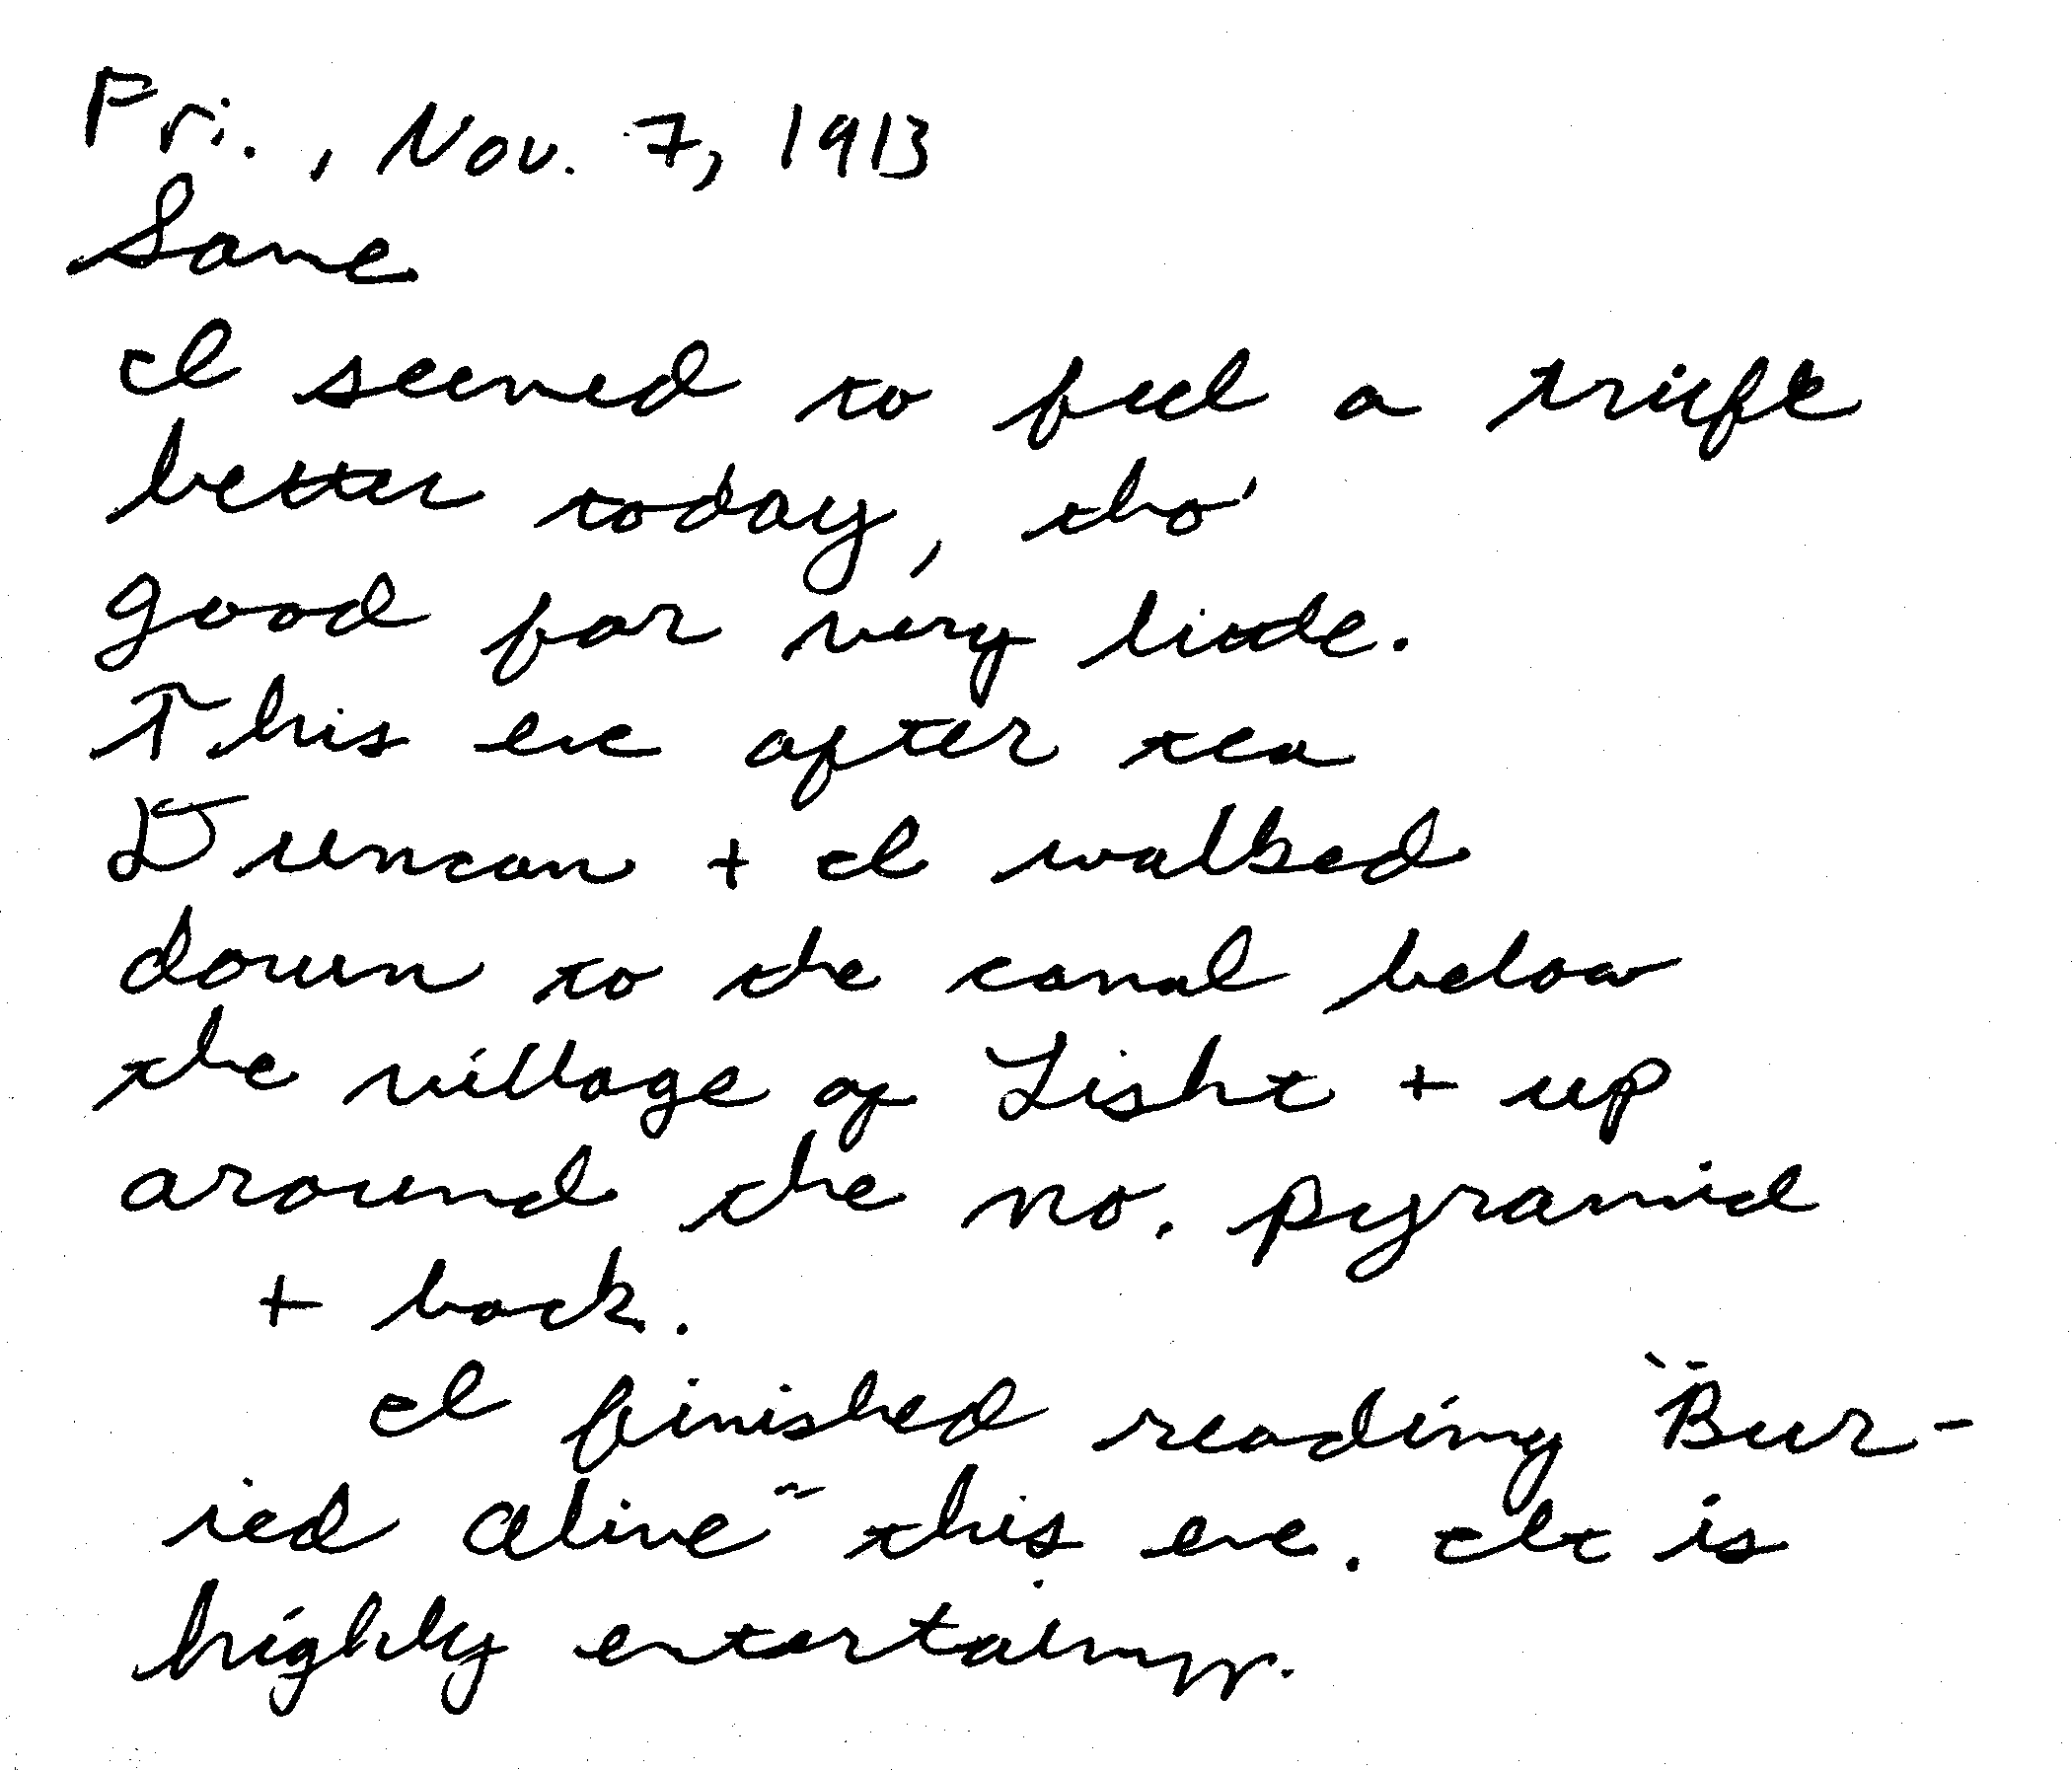 Fri., Nov. 7, 1913
Same
I seemed to feel a trifle
better today, tho'
good for very little.
This eve after tea
Duncan + I walked
down to the canal below
the village of Lisht + up
around the no. pyramid
+ back.
I finished reading "Bur-
ied Alive" this eve. It is
highly entertaining.